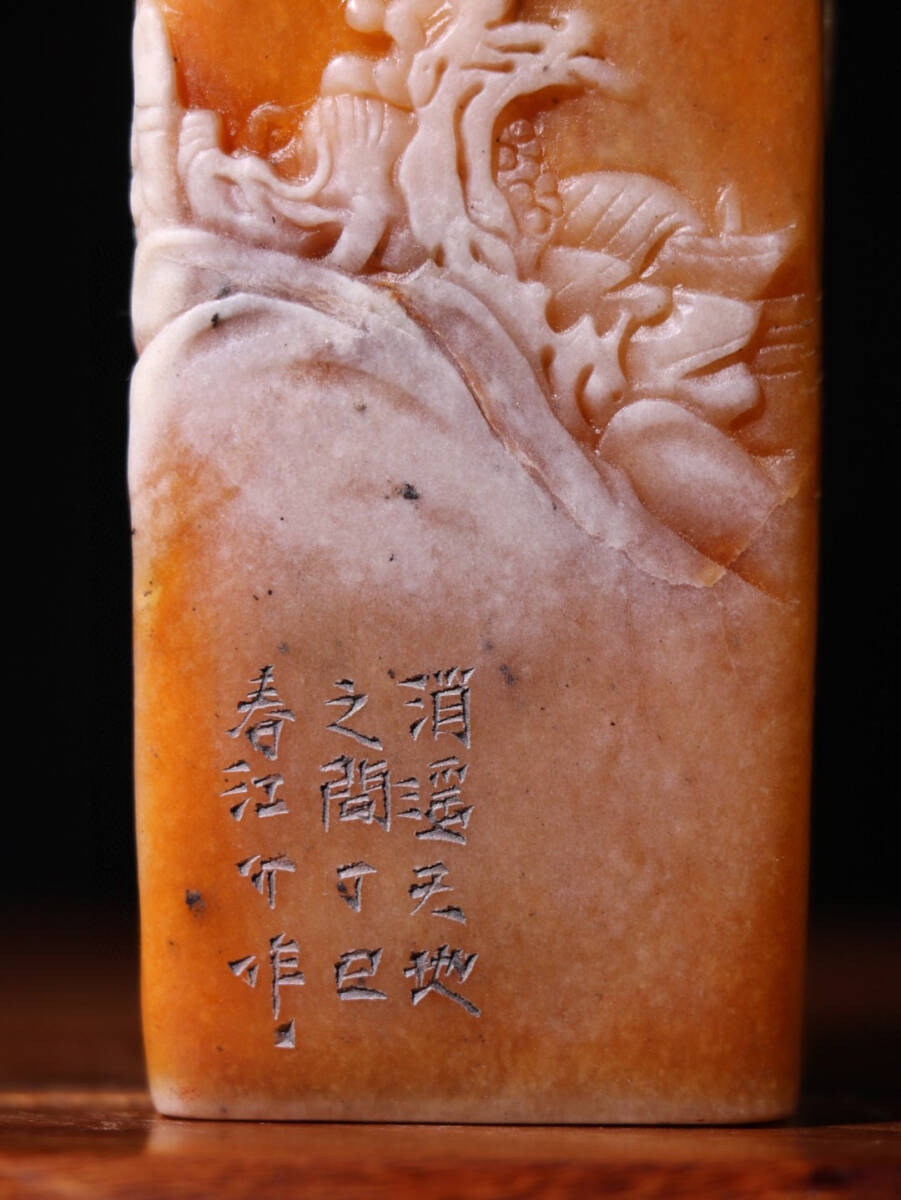 消遥天地
之間丁巳
春江介作